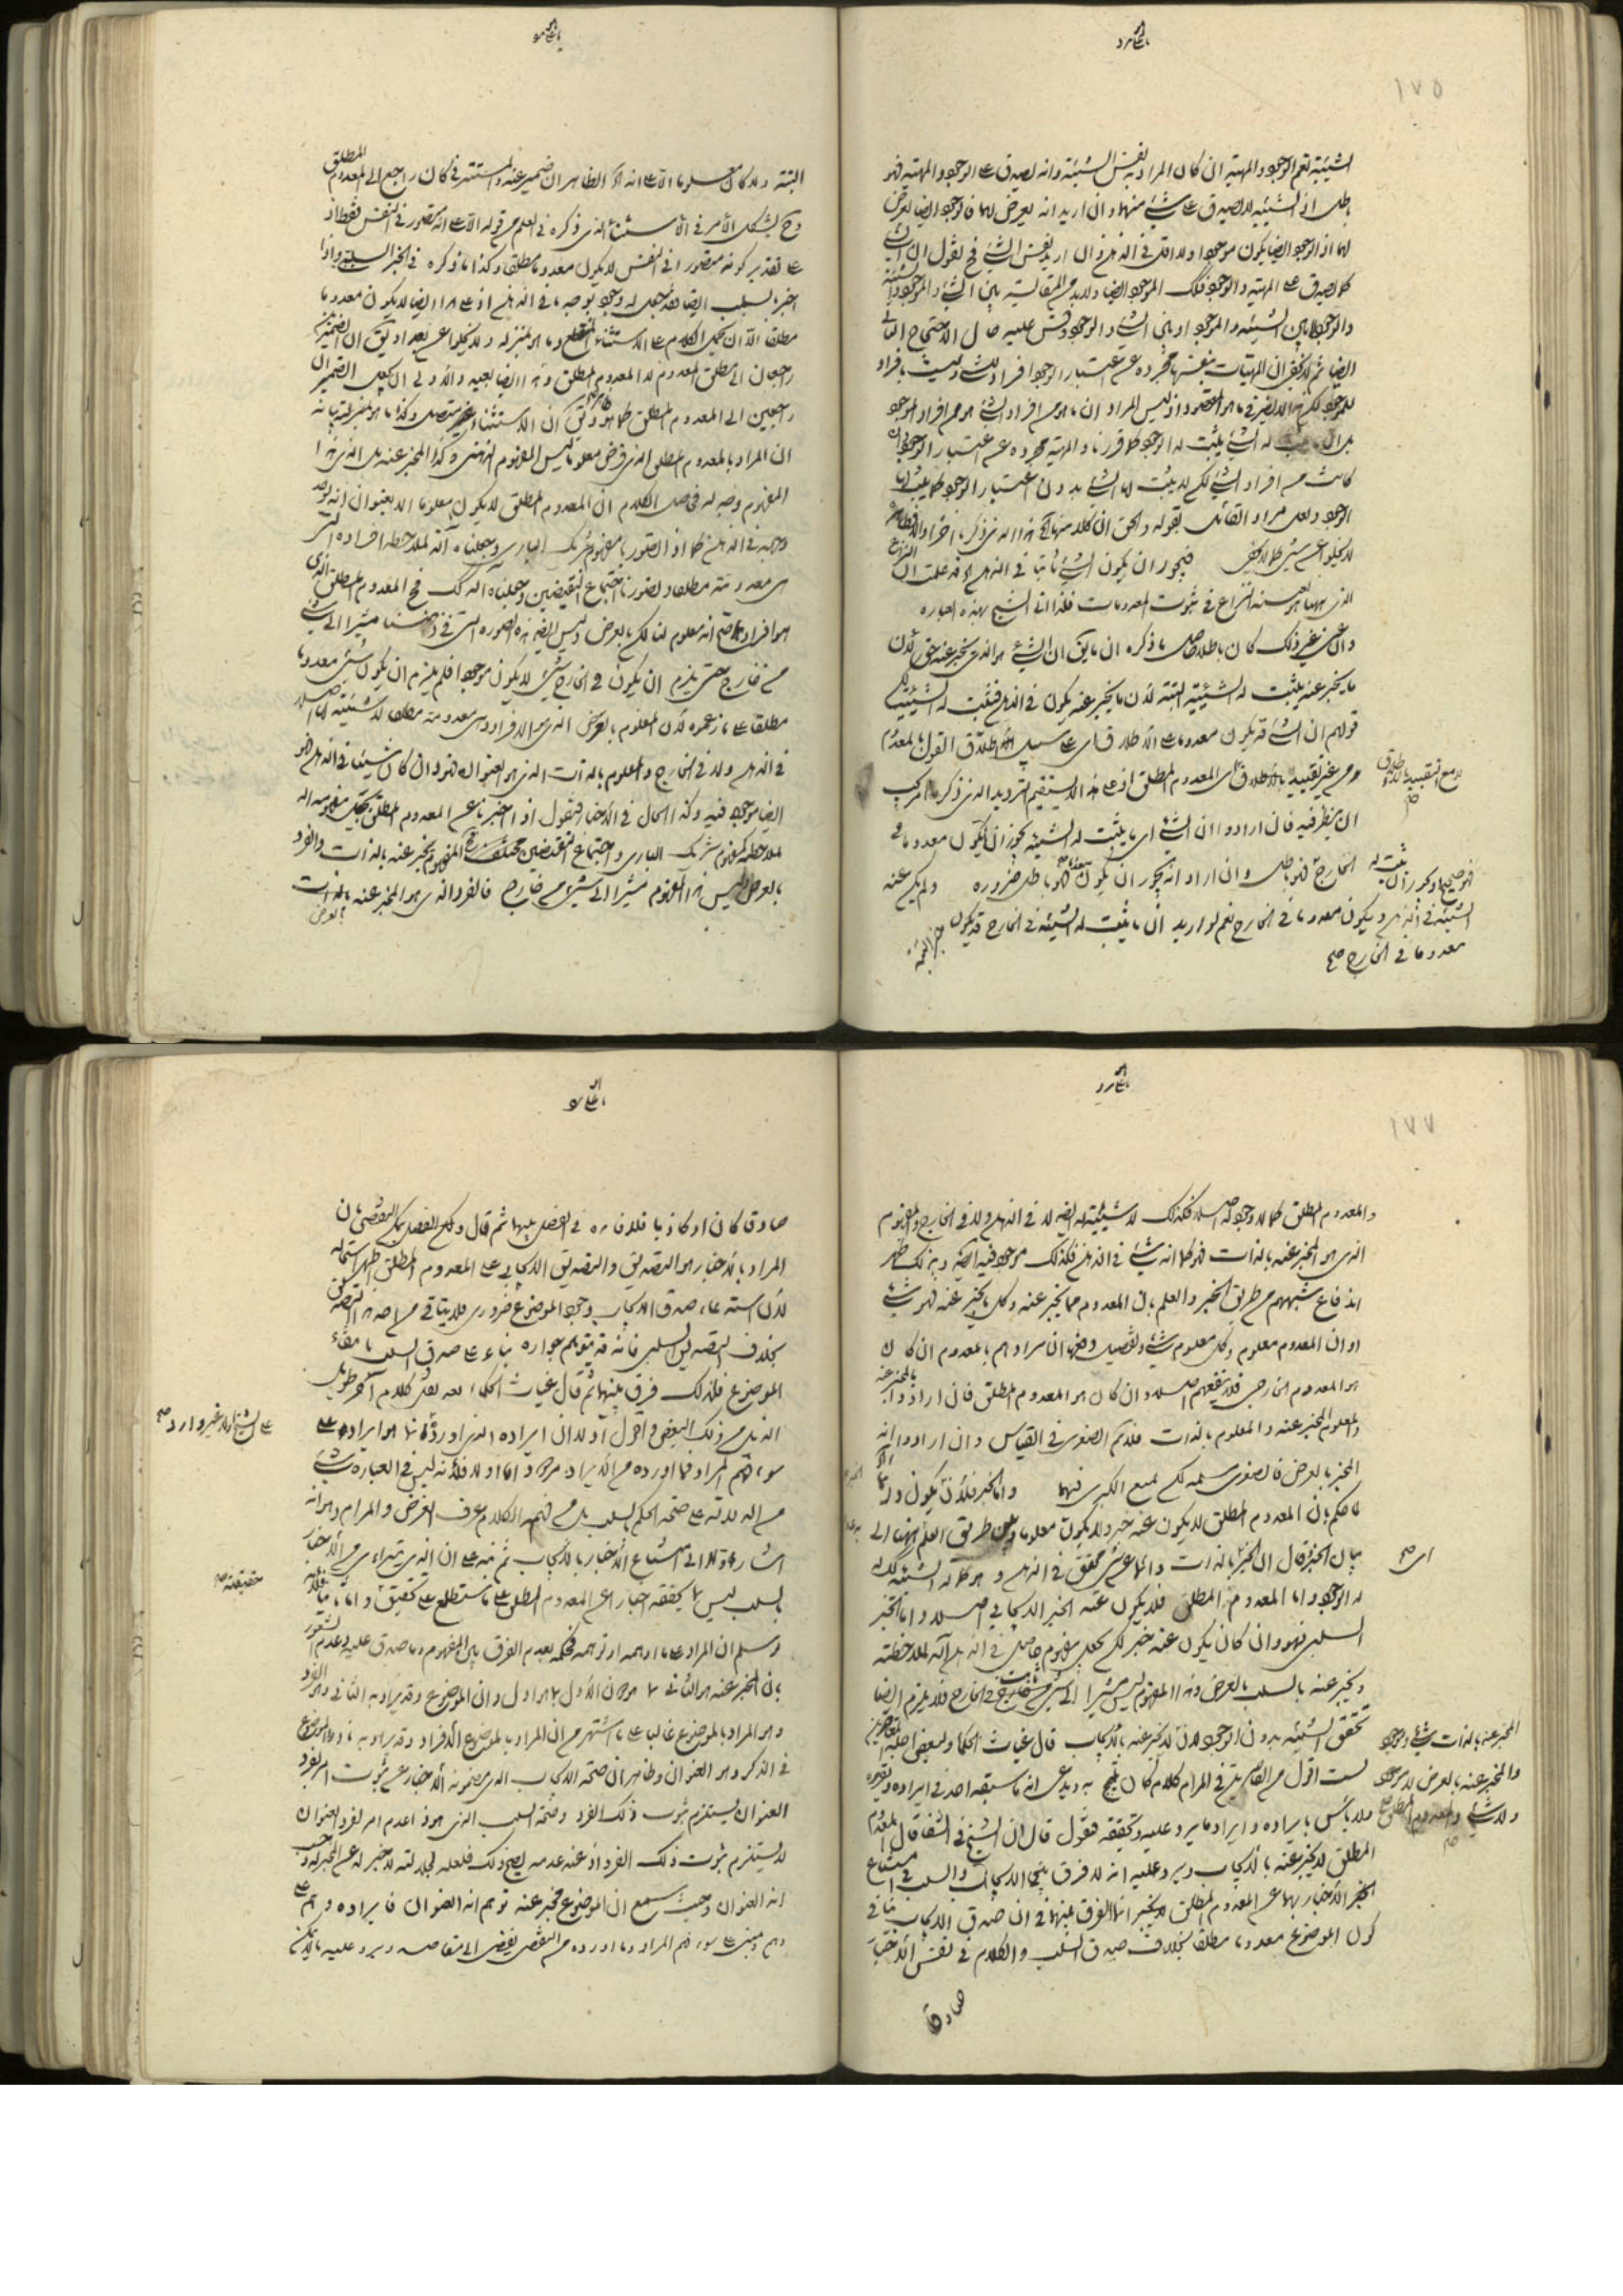 ١٧٥
الشيئية تعم الوجود والمهية ان كان المراد به نفس الشيئية وانه لصدق على الوجود والمهية فهو
باطل اذ الشيئية لا يصدق على شيء منهما وان اريد انه يعرض لهما فالوجود ايضا يعرض
لهما اذ الوجود ايضا يكون موجودا ولا اقل في الذهن وان اريد نفس الشيء فح نقول ان الشيء
كما يصدق على المهية والوجود فكذلك الموجود ايضا ولا بد من المقايسة بين الشيء والموجود والشيئية
والوجود لا بين الشيئية والموجود او بين الشيء والوجود وقس عليه حال الاحتجاج الثاني
ايضا ثم لا يخفى ان المهيات بنفسها مجردة عن اعتبار الوجود افراد للشيء وليست بافراد
للموجود لكن هذا لا يضر في ما هو المقصود اذ ليس المراد ان ما هو من افراد الشيء هو من افراد الموجود
بل ان ما يثبت له الشيء يثبت له الوجود كما قررنا والمهية مجردة عن اعتبار الوجود وان
كانت من افراد الشيء لكن لا يثبت لها الشيء بدون اعتبار الوجود كما يثبت لها
الوجود ولعل مراد القائل بقوله والحق ان كلا منهما هذا الذي ذكرنا اخرا والا فظاهره
لا يخلو عن شيء كما لا يخفى فيجوز ان يكون الشيء ثابتا في الذهن قد علمت ان النزاع
الذي ههنا هو بعينه النزاع في ثبوت المعدومات فلذا اتى الشيخ بهذه العبارة
وان عنى غير ذلك كان باطلا حاصل ما ذكره ان ما يق ان الشيء هو الذي يخبر عنه حق لان
ما يخبر عنه يثبت له الشيئية البتة لان ما يخبر عنه يكون في الذهن فتثبت له الشيئية
قولهم ان الشيء قد يكون معدوما على الاطلاق اي على سبيل اطلاق القول بالمعدوم
من غير تقييده بالاطلاق اي المعدوم المطلق اذ على هذا لا يستقيم الترديد الذي ذكره امر يجب
ان ينظر فيه فان ارادوا ان الشيء اي ما يثبت له الشيئية يجوز ان يكون معدوما في
الخارج فهو باطل وان اراد انه يجوز ان يكون فهو باطل ضرورة ولم يكن عنه
لا مع التقييد بالاطلاق صح
فهو صحيح او يجوز ان يثبت له
الشيئية في الذهن ويكون معدوما في الخارج نعم لو اريد ان ما يثبت له الشيئية في الخارج قد يكون
معدوما في الخارج صح
خبر البتة
البتة ولا كان معلوما الا على انه الظاهر ان ضمير عنه والمستتر في كان راجع الى المعدوم المطلق
وح يشكل الامر في الاستثناء الذي ذكره في العلم من قوله الا على انه متصور في النفس فقط اذ
على تقدير كونه متصورا في النفس لا يكون معدوما مطلقا وكذا ما ذكره في الخبر السلبي واذا
اخبر بالسلب ايضا فقد جعل له وجود بوجه ما في الذهن اذ على هذا ايضا لا يكون معدوما
مطلقا الا ان يحمل الكلام على الاستثناء المنقطع وما هو بمنزلته ولا يخلوا عن بعد او يق ان الضميرين
راجعان الى مطلق المعدوم لا المعدوم المطلق وهذا ايضا بعيد والاولى ان يجعل الضميران
راجعين الى المعدوم المطلق كما هو ويق ان الاستثناء متصل وكذا ما هو بمنزلته بناء
ان المراد بالمعدوم المطلق الذي فرض معلوما ليس المفهوم الذهني وكذا المخبر عنه بل الذي هذا
المفهوم وجه له فحاصل الكلام ان المعدوم المطلق لا يكون معلوما الا بعنوان انه يوجد
وجهه في الذهن كما اذا تصورنا مفهوم شريك الباري وجعلناه آلة لملاحظة افراده التي
هي معدومة مطلقا وتصورنا اجتماع النقيضين وجعلناه آلة كذلك فح المعدوم المطلق الذي
هو افراد صح انه معلوم لنا لكن بالعرض وليس ايضا هذه الصورة التي في ذهننا مشيرا الى شيء
من خارج حتى يلزم ان يكون في الخارج شيء لا يكون موجودا فلم يلزم ان يكون شيء معدوما
مطلقا على ما زعموه لان المعلوم بالعرض الذي هو الافراد وهي معدومة مطلقا لا شيئية لها اصلا
في الذهن ولا في الخارج والمعلوم بالذات الذي هو العنوان فهو وان كان شيئا في الذهن فهو
ايضا موجود فيه وكذا الحال في الاخبار فنقول اذا اخبرنا عن المعدوم المطلق بجعل مفهومه آلة
لملاحظته كمفهوم شريك الباري واجتماع النقيضين المفهوم يخبر عنه بالذات والفرد
بالعرض وليس هذا المفهوم مشيرا الى شيء من خارج فالفرد الذي هو المخبر عنه بالذات
بالعرض
١٧٧
والمعدوم المطلق كما لا وجود له اصلا فكذلك لا شيئية له ايضا لا في الذهن ولا في الخارج والمفهوم
الذي هو المخبر عنه بالذات فهو كما انه شيء في الذهن فكذلك موجود فيه ايضا وبذلك ظهر
اندفاع شبهتهم من طريق الخبر والعلم بان المعدوم مما يخبر عنه وكل ما يخبر عنه فهو شيء
او ان المعدوم معلوم وكل معلوم شيء وتفصيل دفعها ان مرادهم بالمعدوم ان كان
هو المعدوم الخارجي فلا ينفعهم اصلا وان كان هو المعدوم المطلق فان ارادوا بالمخبر عنه
والمعلوم المخبر عنه والمعلوم بالذات فلا تتم الصغرى في القياس وان ارادوا انه
المخبر بالعرض فالصغرى مسلمة لكن نمنع الكبرى فيهما واما الخبر فلان يكون
لما حكم بان المعدوم المطلق لا يكون عنه خبر ولا يكون معلوما وبين طريق العلم انتهى الى
بيان الخبر قال ان الخبر بالذات دائما عن شيء محقق في الذهن وهو كما له الشيئية كذلك
له الوجود واما المعدوم المطلق فلا يكون عنه الخبر الايجابي اصلا واما الخبر
السلبي فهو وان كان يكون عنه خبر لكن يجعل مفهوم حاصل في الذهن آلة لملاحظته
ويخبر عنه بالسلب بالعرض وهذا المفهوم ليس مشيرا الى شيء في الخارج فلا يلزم ايضا
تحقق الشيئية بدون الوجود لا يخبر عنه بالايجاب قال غياث الحكماء لبعض اجلة المعاصرين
لست اقول من القائل في المرام كلام كان يتبجح به ويدعي انه ما سبقه احد في ايراده وتقريره
ولا بأس بايراده وايراد ما يرد عليه وتحقيقه فنقول قال ان الشيخ في الشفاء قال المعدوم
المطلق لا يخبر عنه بالايجاب ويرد عليه انه لا فرق بين الايجاب والسلب في امتناع
الاخبار بهما عن المعدوم المطلق انما الفرق بينهما في ان صدق الايجاب ينافي
كون الموضوع معدوما مطلقا بخلاف صدق السلب والكلام في نفس الاخبار
اي صح
المخبر عنه بالذات شيء وموجود
والمخبر عنه بالعرض لا موجود
ولا شيء والمعدوم المطلق صح
صادقا
صادقا كان او كاذبا فلا فائدة في الفصل بينهما ثم قال ولكن الفصل بان
المراد بالاخبار هو التصديق والتصديق الايجابي على المعدوم المطلق اظهر استحالة
لان استدعاء صدق الايجاب وجود الموضوع ضروري فلا يتأتى من احد هذا التصديق
بخلاف التصديق السلبي فانه قد يتوهم جوازه بناء على صدق السلب بانتفاء
الموضوع فلذلك فرق بينهما ثم قال غياث الحكماء بعد نقل كلام آخر طويل
الذيل من ذلك البعض واقول اولا ان ايراده الذي اورده انما هو ايراده على
سوء فهم المراد فما اورده من الايراد مردود اما اولا فلانه ليس في العبارة شيء
من الدلالة على صحة الحكم بالسلب بل من فهم الكلام عرف الغرض والمرام وهو انه
اشار اولا الى امتناع الاخبار بالايجاب ثم نبه على ان الذي يتراءى من الاخبار
بالسلب ليس بالحقيقة اخبارا عن المعدوم المطلق على ما ستطلع على تحقيقه واما ثانيا فلانه
وسلم ان المراد على ما اوهمه او توهمه فحكمه بعدم الفرق بين المفهوم وما صدق عليه وعدم الشعور
بان المخبر عنه هو الثاني لا الاول وان الموضوع وقد يراد به الثاني وهو الفرد
وهو المراد بالموضوع غالبا على ما اشتهر من ان المراد بالموضوع الافراد وقد يراد به ما هو الموضوع
في الذكر وهو العنوان وظاهر ان صحة الايجاب الذي مضمونه الاخبار عن ثبوت امر لفرد
العنوان يستلزم ثبوت ذلك الفرد وصحة السلب الذي هو اعدم امر لفرد العنوان
لا يستلزم ثبوت ذلك الفرد اذ عند عدمه يصح ذلك فلعله لجلالته لا خبر له عن المخبر عنه وحسب
انه العنوان وحيث سمع ان الموضوع مخبر عنه توهم انه العنوان فايراده وهم على
وهم ومبنى على سوء فهم المراد وما اورده من النقص يفضي الى مفاسد ويرد عليه
على الشيخ اولا غير وارد صح
حقيقته صح